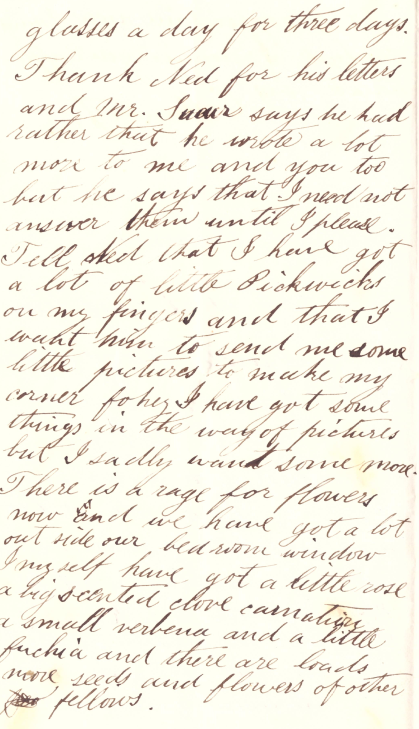 glasses a day for three days.
Thank Ned for his letters
and Mr. says he had
rather that he wrote a lot
more to me and you too
but he says that I need not
answer them until I please.
Tell Ned that I have got
a lot of little Pickwicks
on my fingers and that I
want him to send me some
little pictures to make my
corner I have got some
things in the way of pictures
but I sadly want some more.
There is a rage for flowers
now and we have got a lot
out side our bedroom window
I myself have got a little rose
a big scented clove carnation
a small verbena and a little
fuchia and there are loads
more seeds and flowers of other
fellows.